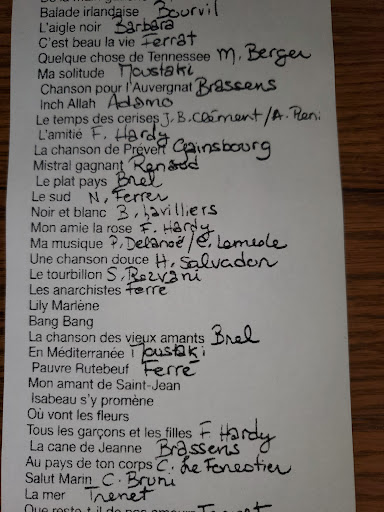 Balade irlandaise Bourvil
L'aigle noir Barbara
C'est beau la vie Ferrat
Quelque chose de Tennessee M. Berger
Ma solitude Moustaki
Chanson pour l'Auvergnat Brassens
Inch Allah Adamo
Le temps des cerises J. B. Clément / A. Reni
L'amitié F. Hardy
La chanson de Prévert Gainsbourg
Mistral gagnant Renaud
Le plat pays Brel
Le sud N. Ferrer
Noir et blanc B. Lavilliers
Mon amie la rose F. Hardy
Ma musique P. Delanoë / C. Lemesle
Une chanson douce H. Salvador
Le tourbillon S. Rezvani
Les anarchistes Ferré
Lily Marlène
Bang Bang
La chanson des vieux amants Brel
En Méditerranée Moustaki
Pauvre Rutebeuf Ferré
Mon amant de Saint-Jean
Isabeau s'y promène
Où vont les fleurs
Tous les garçons et les filles F Hardy
La cane de Jeanne Brassens
Au pays de ton corps C. Le Forestier
Salut Marin C. Bruni
La mer Trenet
Que reste-t-il de nos amours Trenet